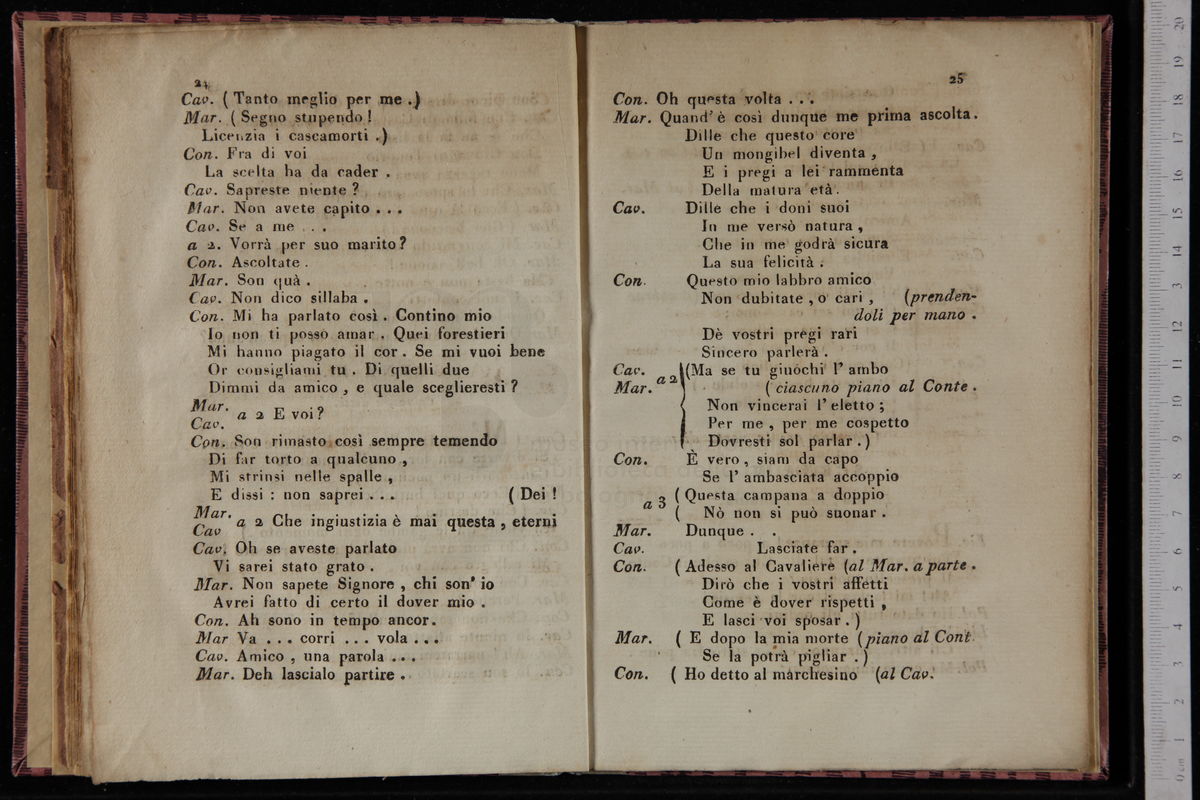 24
Cav. ( Tanto meglio per me .)
Mar. ( Segno stupendo !
Licenzia i cascamorti .)
Con. Fra di voi
La scelta ha da cader .
Cav. Sapreste niente ?
Mar. Non avete capito . . .
Cav. Se a me . . .
a 2. Vorrà per suo marito ?
Con. Ascoltate .
Mar. Son quà .
Cav. Non dico sillaba .
Con. Mi ha parlato così . Contino mio
Io non ti posso amar . Quei forestieri
Mi hanno piagato il cor . Se mi vuoi bene
Or consigliami tu . Di quelli due
Dimmi da amico , e quale sceglieresti ?
Mar.
Cav. a 2 E voi ?
Con. Son rimasto così sempre temendo
Di far torto a qualcuno ,
Mi strinsi nelle spalle ,
E dissi : non saprei . . . ( Dei !
Mar.
Cav a 2 Che ingiustizia è mai questa , eterni
Cav. Oh se aveste parlato
Vi sarei stato grato .
Mar. Non sapete Signore , chi son' io
Avrei fatto di certo il dover mio .
Con. Ah sono in tempo ancor.
Mar Va . . . corri . . . vola . . .
Cav. Amico , una parola . . .
Mar. Deh lascialo partire .
25
Con. Oh questa volta . . .
Mar. Quand' è così dunque me prima ascolta .
Dille che questo core
Un mongibel diventa ,
E i pregi a lei rammenta
Della matura età .
Cav. Dille che i doni suoi
In me versò natura ,
Che in me godrà sicura
La sua felicità .
Con. Questo mio labbro amico
Non dubitate , o cari , (prenden-
doli per mano .
Dè vostri pregi rari
Sincero parlerà .
Cav. (Ma se tu giuochi l' ambo
Mar. a 2 ( ciascuno piano al Conte .
Non vincerai l' eletto ;
Per me , per me cospetto
Dovresti sol parlar . )
Con. È vero , siam da capo
Se l' ambasciata accoppio
a 3 ( Questa campana a doppio
( Nò non si può suonar .
Mar. Dunque . .
Cav. Lasciate far .
Con. ( Adesso al Cavaliere (al Mar. a parte .
Dirò che i vostri affetti
Come è dover rispetti ,
E lasci voi sposar . )
Mar. ( E dopo la mia morte (piano al Cont
Se la potrà pigliar . )
Con. ( Ho detto al marchesino (al Cav.